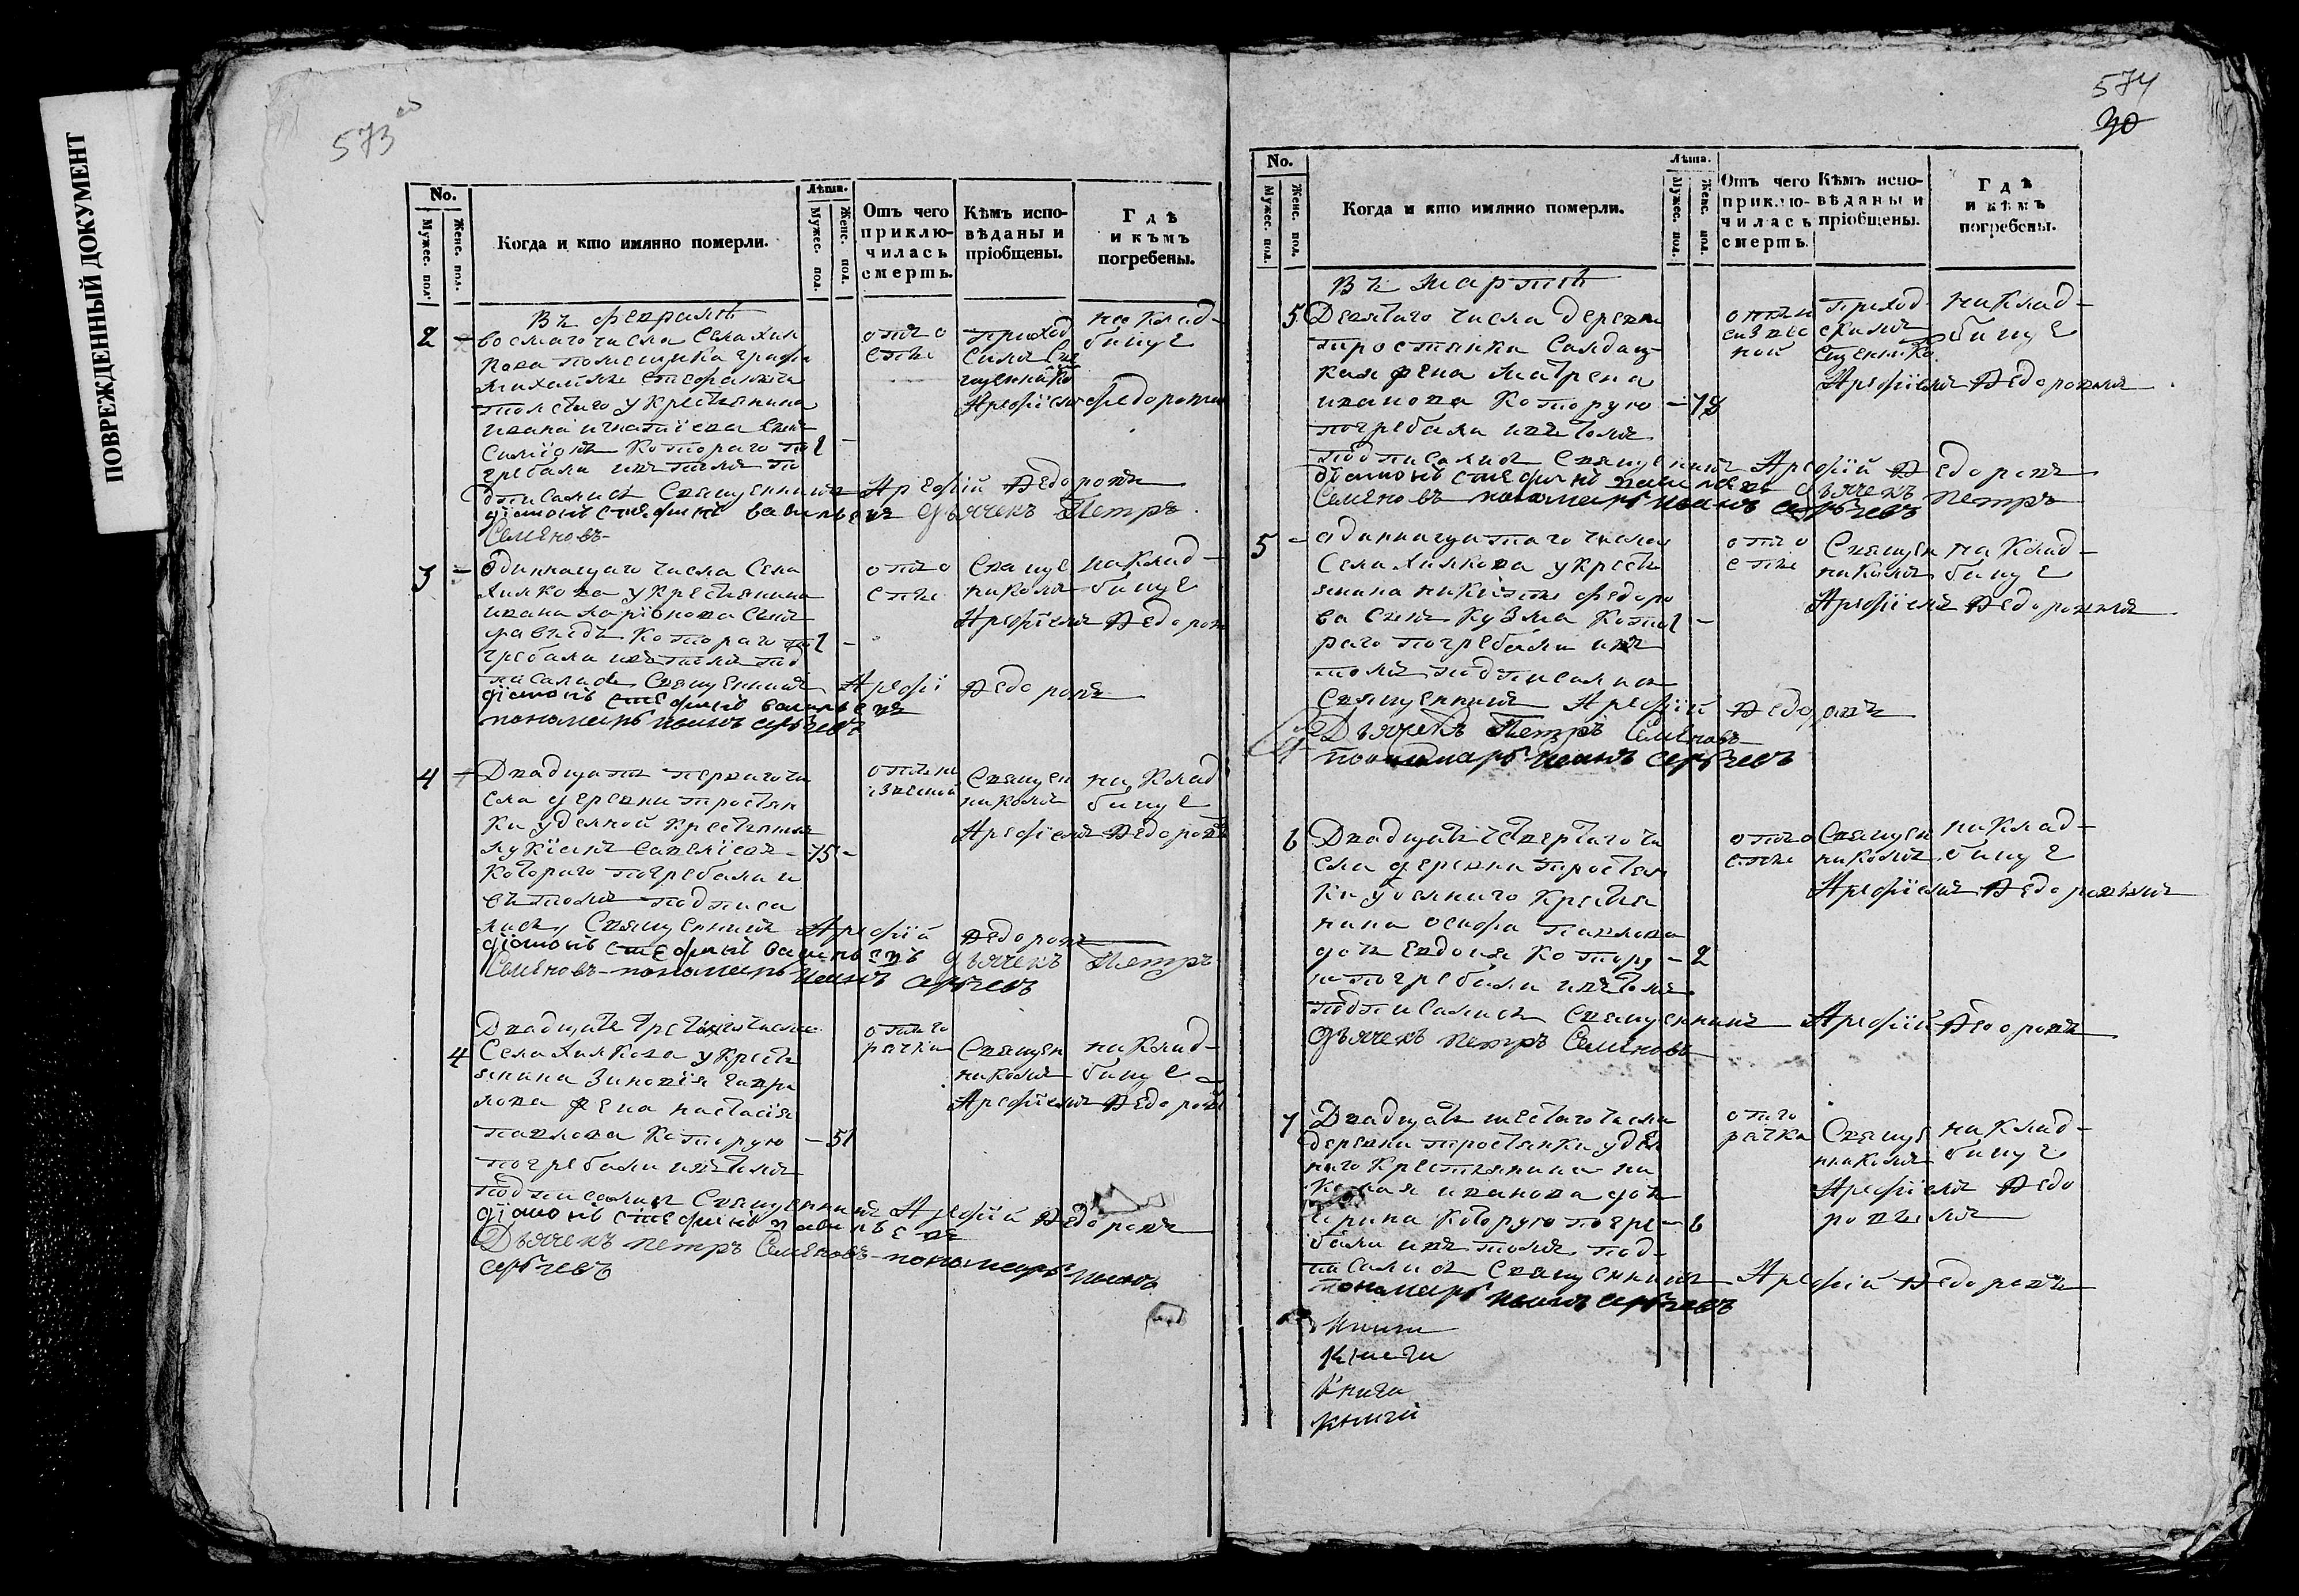 ПОВРЕЖДЕННЫЙ ДОКУМЕНТ
573 об
No.
Мужес. пол.
Женс. пол.
Когда и кто имянно померли.
Лѣта.
Мужес. пол.
Женс. пол.
Отъ чего приклю-
чилась
смерть.
Кѣмъ испо-
вѣданы и
пріобщены.
Гдѣ
и кѣмъ
погребены.
Въ февралѣ
2 - восмаго числа Села Хил
кова помещика графа
Михайлы Стефанича
толстаго у крестьянина
ивана игнатіева Сынъ
Симіонъ Котораго по 1 -
гребали ивъ томъ по
дписались Священникъ Арефій Ѳедоровъ
діяконъ стефанъ васильевъ Дьячекъ Петръ
Семеновъ
отъ о
спы
приход
скимъ Свя
щеннико
Арефіемъ Федоровым
на клад-
бище
3 - Одиннацаго числа Села
Хилкова у крестьянина
ивана ларіонова Сынъ
Котораго по 1 -
гребали ивъ томъ под
писались Священникъ Арефі Ѳедоровъ
діяконъ стефанъ васильевъ
пономарь иванъ сергѣевъ
отъ о
спы
Свяще
никомъ
Арефіемъ Ѳедоров
на клад-
бище
4 - Двадцать перваго чи
сла деревни тростян
ки уделной крестьянинъ
лукіянъ Савеліевъ - 75 -
котораго погребали и
въ томъ подписа
лись Священникъ Арефій Ѳедоровъ
діяконъ стефанъ васильевъ Дьячекъ Петръ
Семеновъ пономарь иванъ сергѣевъ
Священ
никомъ
Арефіемъ Ѳедоров
на клад
бище
Двадцать третіяго числа
4 Села Хилкова у кресть
янина Зиновія гаври
лова жена настасія
павлова Которую - 51
погребали ивътомъ
подписались Священникъ Арефій Ѳедоровъ
діяконъ стефанъ васильевъ
Дьячекъ петръ Семеновъ пономарь иванъ
сергѣевъ
отъ го
рячки
Священ
никомъ
Арефіемъ Ѳедоров
на клад-
бище
574
30
No.
Мужес. пол.
Женс. пол.
Когда и кто имянно померли.
Лѣта.
Мужес. пол.
Женс. пол.
Отъ чего
приклю-
чилась
смерть.
Кѣмъ испо-
вѣданы и
пріобщены.
Гдѣ
и кѣмъ
погребены.
Въ мартѣ
5 Девятаго числа деревни
тростянки Салдац
кая жена Матрена
иванова Которую - 78
погребали ивътомъ
подписались Священникъ Арефій Ѳедоровъ
діяконъ стефанъ васильевъ дьячекъ петръ
Семеновъ пономарь иванъ сергѣевъ
приход
скимъ
Священнико
Арефіемъ Ѳедоровымъ
на клад-
бище
5 - одиннацатаго числа
Села Хилкова у кресть
янина никиты федоро
ва сынъ Кузма Кото 1 -
раго погребали ивъ
томъ подписались
Священникъ Арефій Ѳедоровъ
Дьячекъ Петръ Семеновъ
пономарь иванъ сергѣевъ
отъ о
спы
Священ
никомъ
Арефіемъ Ѳедоровымъ
на клад-
бище
6 Двадцать Четвертаго чи
сла деревни тростян
ки уделнаго крестья
нина осифа павлова
дочь Евдокія Котору - 2
ю погребали ивътомъ
подписались Священникъ Арефій Ѳедоровъ
дьячекъ петръ Семеновъ
отъ о
спы
Священ
никомъ
Арефіемъ Ѳедоровымъ
на клад-
бище
7 Двадцать шестаго числа
деревни тростянки удѣл
наго крестьянина ни
колая иванова дочь
ирина Которую погре - 6
бали ивъ томъ под-
писались Священникъ Арефій Ѳедоровъ
пономарь иванъ сергѣевъ
отъ го
рячки
Свяще
нникомъ
Арефіемъ Ѳедо
ровымъ
на клад-
бище
книги
книги
книга
книги